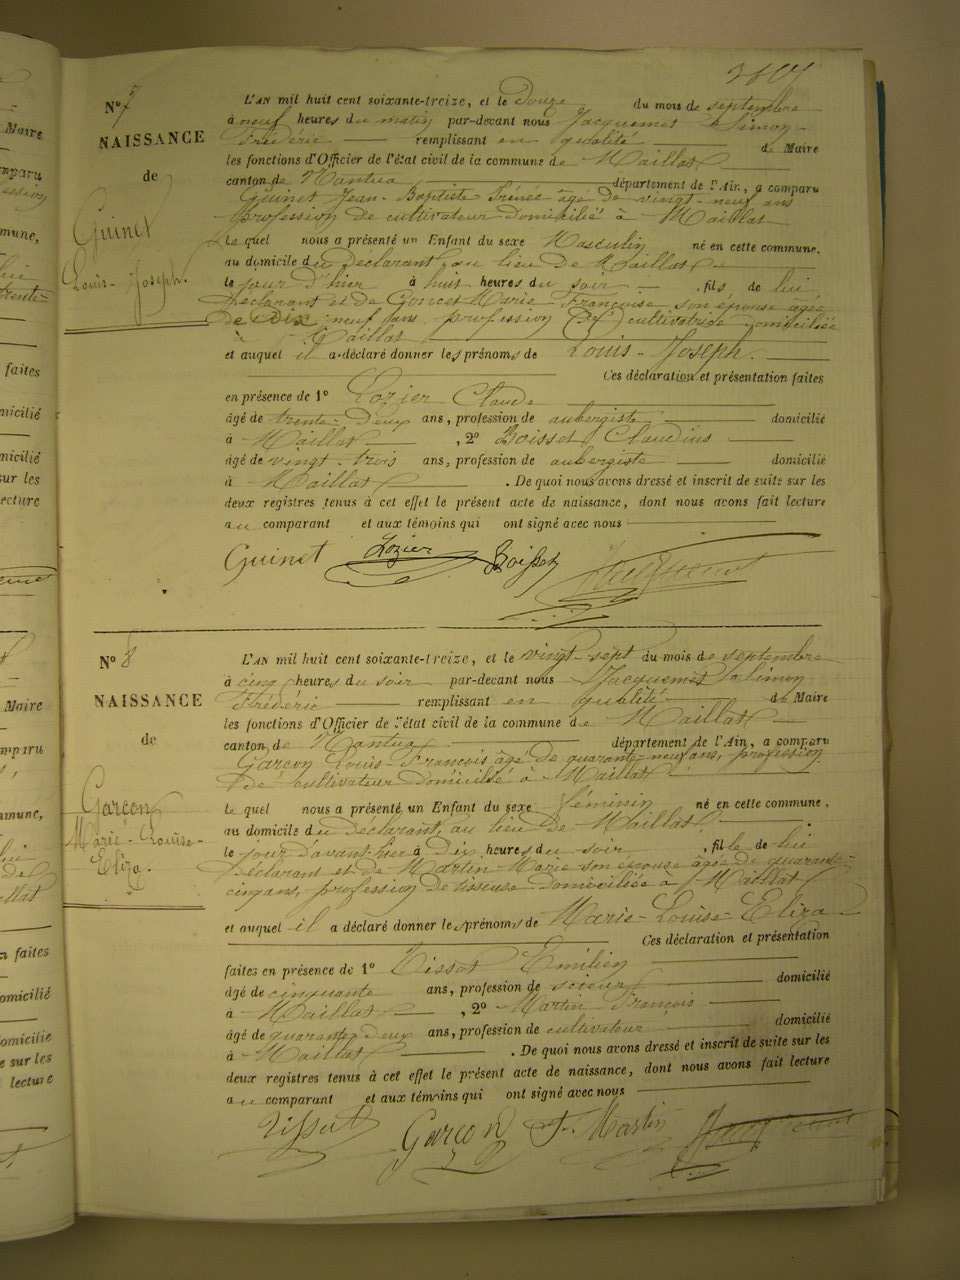 N° 7
NAISSANCE
de
Guinet
Louis-Joseph.
L'AN mil huit cent soixante-treize, et le Douze du mois de septembre
à neuf heures du matin par-devant nous Jacquemet Simon-
Frédéric remplissant en qualité de Maire
les fonctions d'Officier de l'état civil de la commune de Maillat
canton de Nantua département de l'Ain, a comparu
Guinet Jean-Baptiste Irénée âgé de vingt-neuf ans
profession de cultivateur domicilié à Maillat
Lequel nous a présenté un Enfant du sexe Masculin né en cette commune,
au domicile du Déclarant, au lieu de Maillat
le jour d'hier à huit heures du soir, fils de lui
Déclarant et de Goncet Marie Françoise son épouse âgée
de Dix neuf ans profession de cultivatrice domiciliée
à Maillat
et auquel il a déclaré donner les prénoms de Louis-Joseph.
Ces déclaration et présentation faites
en présence de 1° Lozier Claude
âgé de trente-deux ans, profession de aubergiste domicilié
à Maillat, 2° Boisset Claudius
âgé de vingt-trois ans, profession de aubergiste domicilié
à Maillat. De quoi nous avons dressé et inscrit de suite sur les
deux registres tenus à cet effet le présent acte de naissance, dont nous avons fait lecture
au comparant et aux témoins qui ont signé avec nous
Guinet Lozier Boisset Jacquemet
N° 8
NAISSANCE
de
Garçon
Marie-Louise-
Eliza.
L'AN mil huit cent soixante-treize, et le vingt-sept du mois de septembre
à cinq heures du soir par-devant nous Jacquemet Simon
Frédéric remplissant en qualité de Maire
les fonctions d'Officier de l'état civil de la commune de Maillat
canton de Nantua département de l'Ain, a comparu
Garçon Louis-François âgé de quarante-neuf ans, profession
de cultivateur domicilié à Maillat
Lequel nous a présenté un Enfant du sexe féminin né en cette commune,
au domicile du Déclarant, au lieu de Maillat,
le jour d'avant-hier à Dix heures du soir, fille de lui
Déclarant et de Martin Marie son épouse âgée de quarante-
cinq ans, profession de tisseuse domiciliée à Maillat
et auquel il a déclaré donner les prénoms de Marie-Louise-Eliza
Ces déclaration et présentation
faites en présence de 1° Tissot Emilien
âgé de cinquante ans, profession de scieur domicilié
à Maillat, 2° Martin François
âgé de quarante deux ans, profession de cultivateur domicilié
à Maillat. De quoi nous avons dressé et inscrit de suite sur les
deux registres tenus à cet effet le présent acte de naissance, dont nous avons fait lecture
au comparant et aux témoins qui ont signé avec nous
Tissot Garçon F. Martin Jacquemet